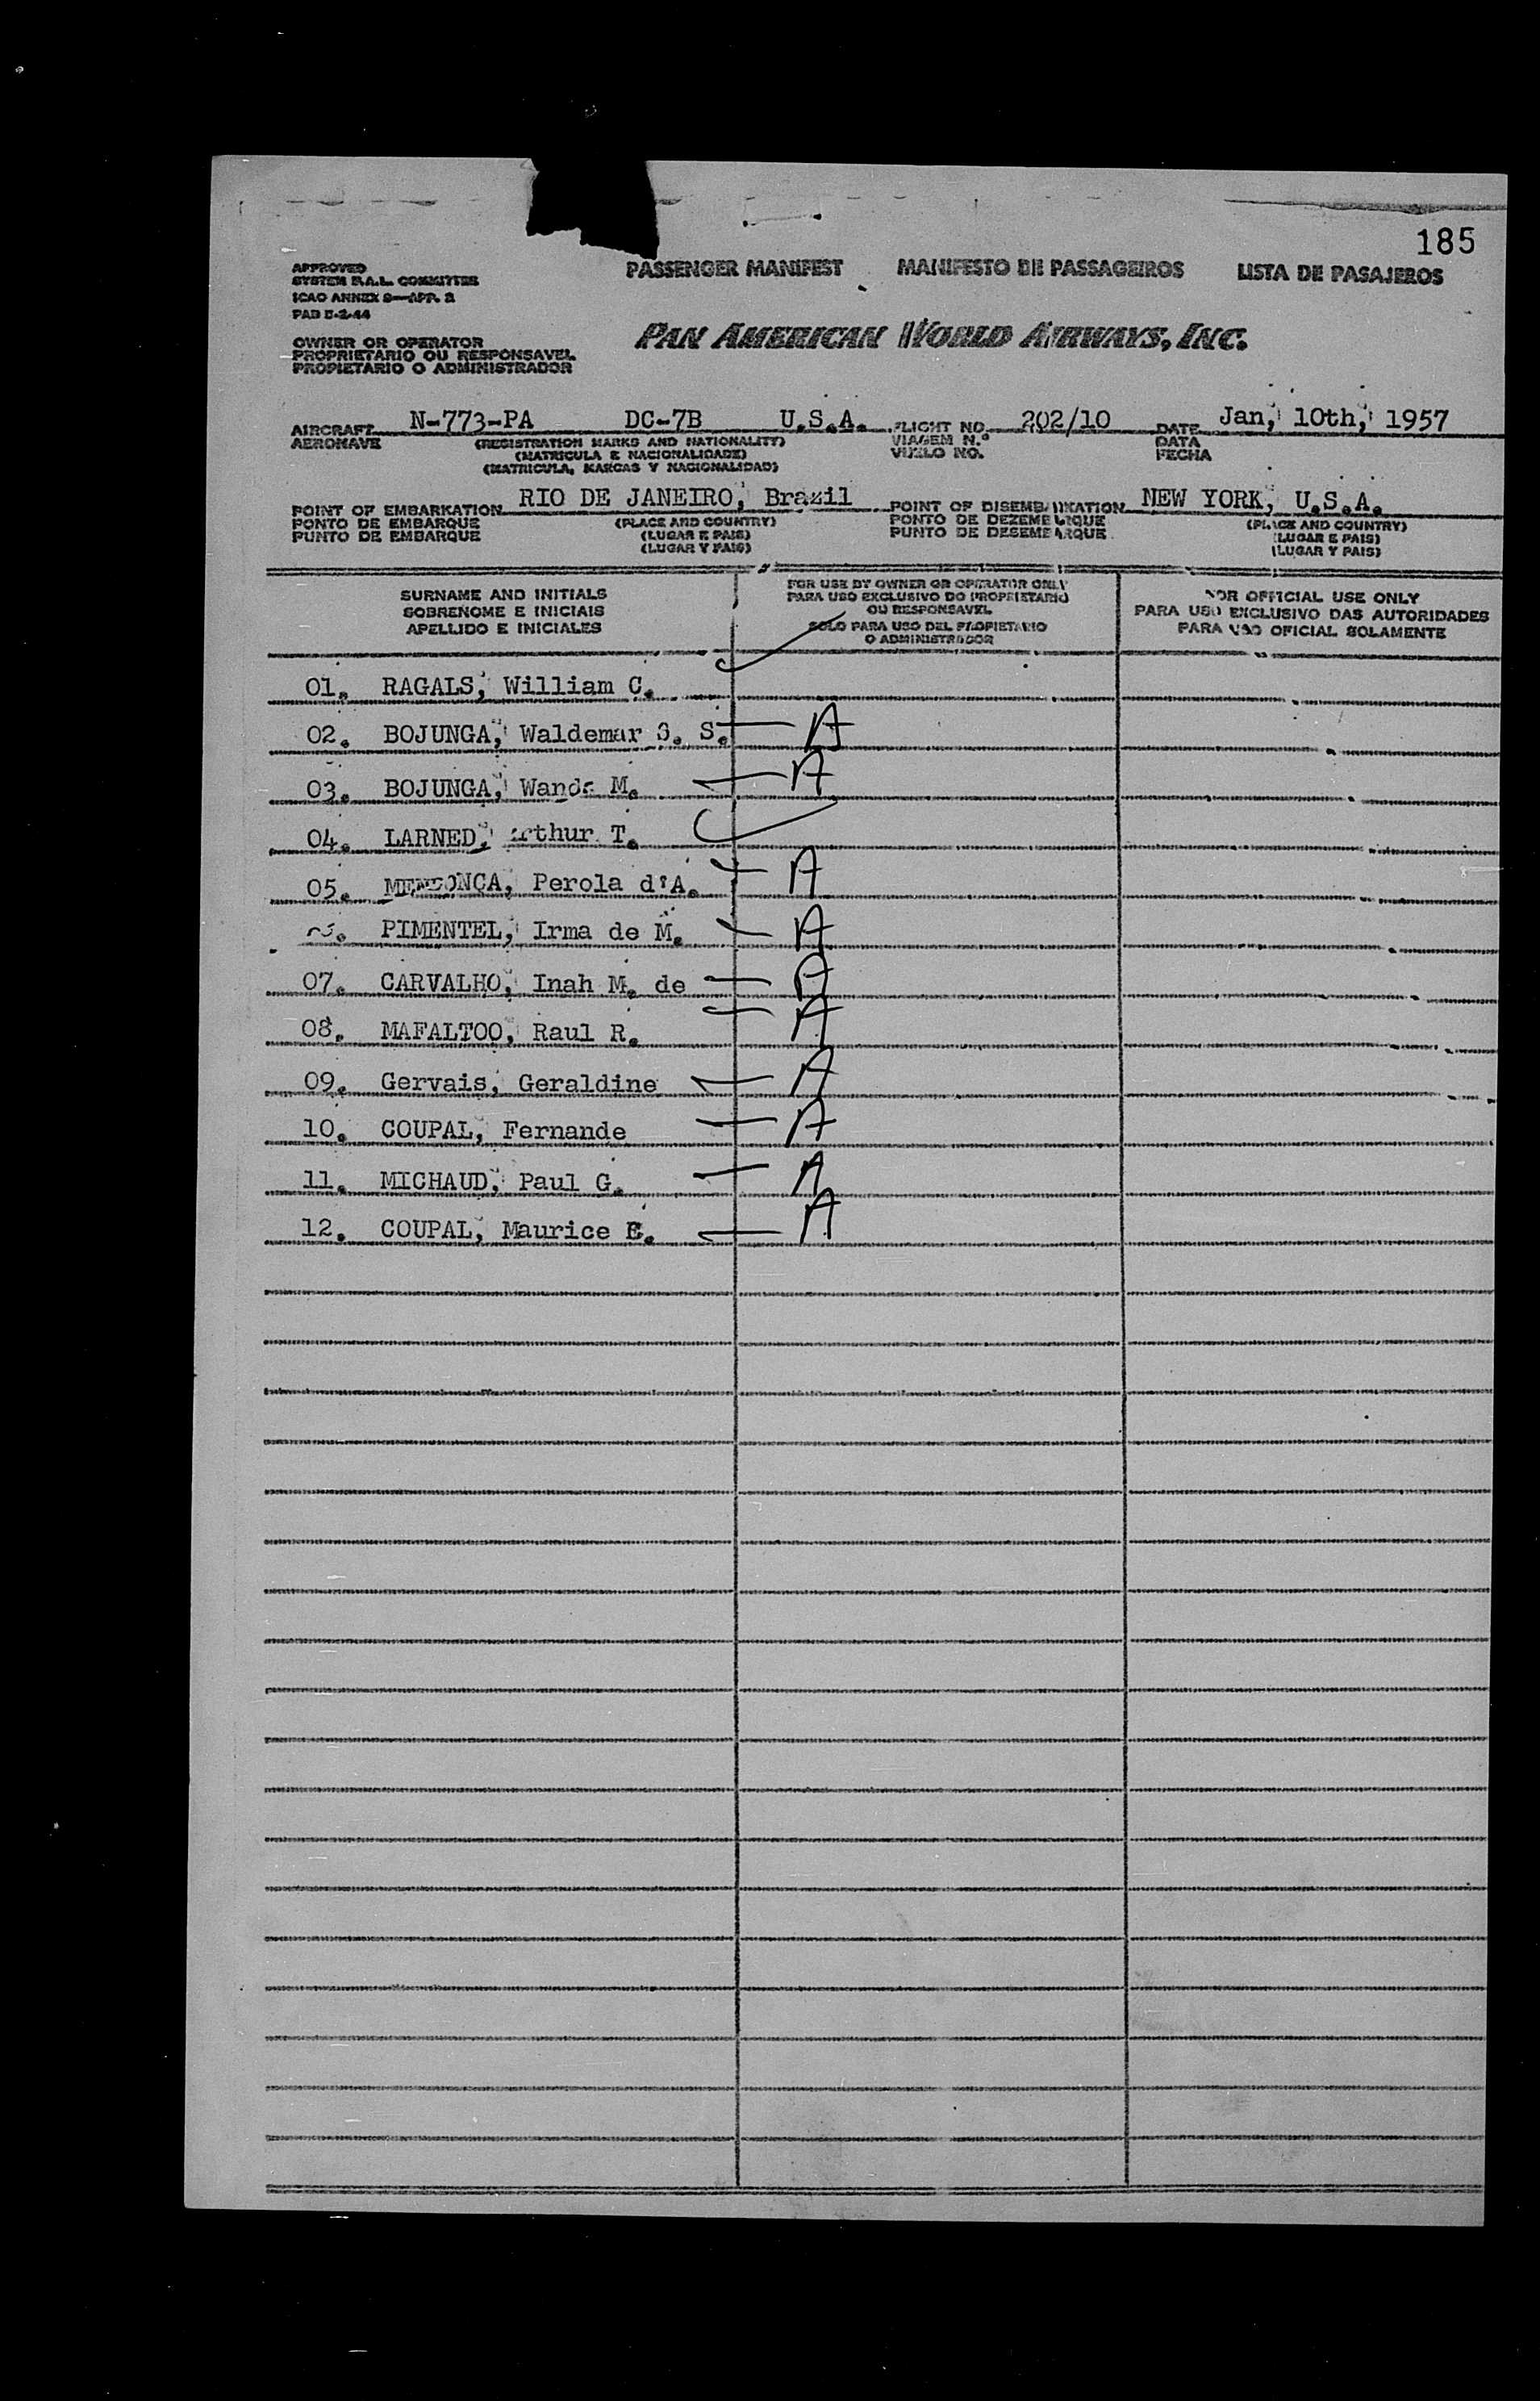 185
APPROVED
SYSTEM P.A.L. COMMITTEE
ICAO ANNEX 9—APP. 2
PASSENGER MANIFEST MANIFESTO DE PASSAGEIROS LISTA DE PASAJEROS
PAN AMERICAN WORLD AIRWAYS, INC.
OWNER OR OPERATOR
PROPRIETARIO OU RESPONSAVEL
PROPIETARIO O ADMINISTRADOR
AIRCRAFT N-773-PA DC-7B U.S.A. FLIGHT NO. 202/10 DATE Jan, 10th, 1957
AERONAVE (REGISTRATION MARKS AND NATIONALITY) VIAGEM N.º DATA
(MATRICULA E NACIONALIDADE) VUELO NO. FECHA
(MATRICULA, MARCAS Y NACIONALIDAD)
POINT OF EMBARKATION RIO DE JANEIRO, Brazil POINT OF DISEMBARKATION NEW YORK, U.S.A.
PONTO DE EMBARQUE (PLACE AND COUNTRY) PONTO DE DEZEMBARQUE (PLACE AND COUNTRY)
PUNTO DE EMBARQUE (LUGAR E PAIS) PUNTO DE DESEMBARQUE (LUGAR E PAIS)
(LUGAR Y PAIS) (LUGAR Y PAIS)
SURNAME AND INITIALS
SOBRENOME E INICIAIS
APELLIDO E INICIALES
FOR USE BY OWNER OR OPERATOR ONLY
PARA USO EXCLUSIVO DO PROPRIETARIO
OU RESPONSAVEL
SOLO PARA USO DEL PROPIETARIO
O ADMINISTRADOR
FOR OFFICIAL USE ONLY
PARA USO EXCLUSIVO DAS AUTORIDADES
PARA USO OFICIAL SOLAMENTE
01. RAGALS, William C.
02. BOJUNGA, Waldemar S. A
03. BOJUNGA, Wanda M. A
04. LARNED, Arthur T.
05. MENDONCA, Perola d'A. A
PIMENTEL, Irma de M. A
07. CARVALHO, Inah M. de A
08. MAFALTOO, Raul R. A
09. Gervais, Geraldine A
10. COUPAL, Fernande A
11. MICHAUD, Paul G. A
12. COUPAL, Maurice E. A